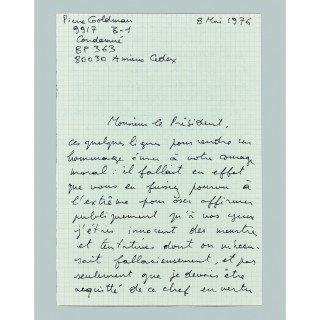 Pierre Goldman
8 Mai 1976
9917 B-1
Condamné
BP 363
80030 Amiens Cedex
Monsieur le Président,
ces quelques lignes pour rendre un
hommage ému à votre courage
moral : il fallait en effet
que vous en fussiez pourvu à
l'extrême pour oser affirmer
publiquement qu'à vos yeux
j'étais innocent des meurtres
et tentatives dont on m'accu-
sait fallacieusement, et pas
seulement que je devais être
acquitté de ce chef en vertu